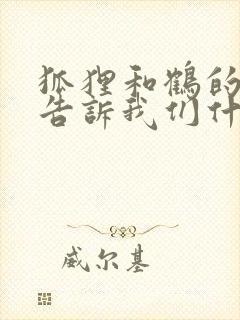 狐狸和鹤的
告訴我们什
威尔基